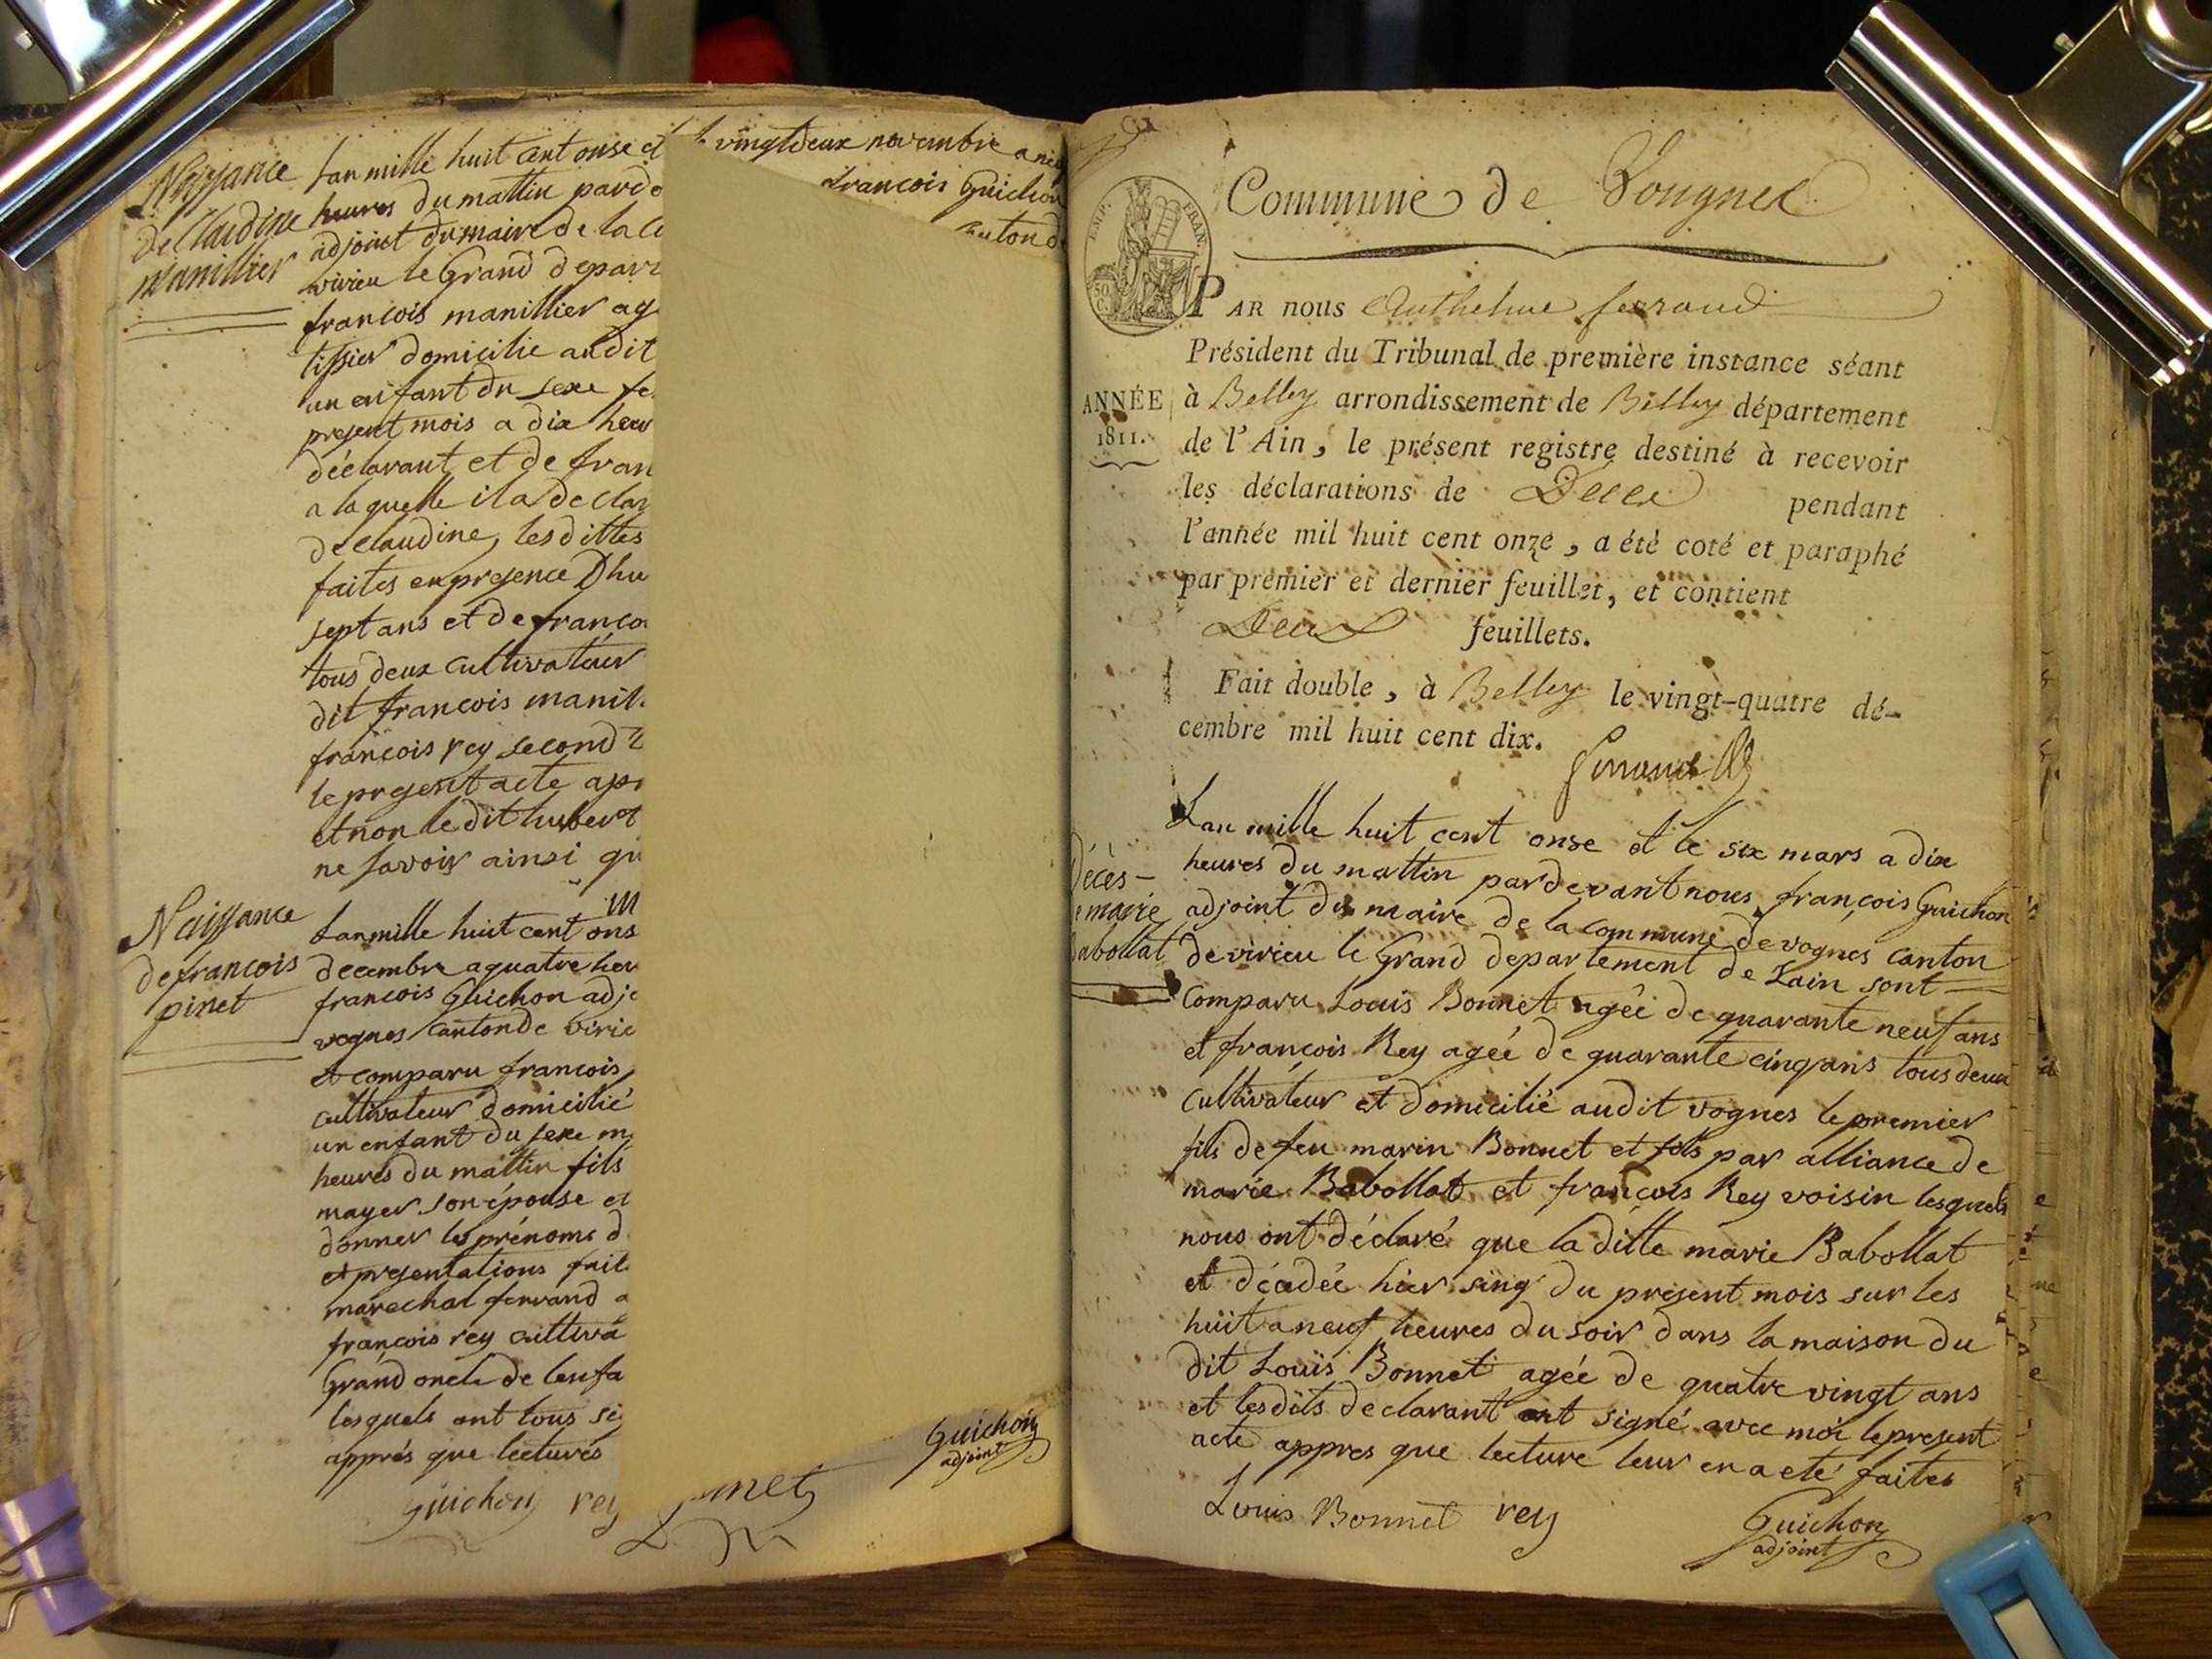 Naissance
de Claudine
manillier
Lan mille huit cent onse et
heures du mattin pard
adjoint du maire de la c
virieu le Grand depart
francois manillier ag
tissier domicilie audit
un enfant du sexe fe
present mois a dix heu
déclarant et de fran
a laquelle il a declar
de claudine, les dittes
faites en presence Dhu
sept ans et de franco
tous deux cultivateur
dit francois manil
francois rey second t
le present acte app
et non le dit hubert
ne savoir ainsi qu
le vingt deux novembre a neuf
francois Guichon
canton de
Naissance
de francois
pinet
Lan mille huit cent ons
decembre a quatre heu
francois Guichon adjo
vognes canton de virie
et comparu francois
cultivateur domicilié
un enfant du sexe m
heures du mattin fils
mayer son épouse et
donner les prénoms d
et presentations fait
marechal ferrand a
francois rey cultiva
Grand oncle de lenfa
lesquels ont tous si
apprés que lectures
Guichon rey pinet
Guichon
adjoint
Commune de Vougnes
EMP. FRAN.
50
C.
PAR nous Anthelme ferrand
Président du Tribunal de première instance séant
ANNÉE
1811.
à Belley arrondissement de Belley département
de l'Ain, le présent registre destiné à recevoir
les déclarations de Décès pendant
l'année mil huit cent onze, a été coté et paraphé
par premier et dernier feuillet, et contient
Deux feuillets.
Fait double, à Belley le vingt-quatre dé-
cembre mil huit cent dix.
Décès
e marie
Babollat
Lan mille huit cent onse et le six mars a dix
heures du mattin pardevant nous francois Guichon
adjoint du maire de la commune de vognes canton
de virieu le Grand departement de Lain sont
comparu Louis Bonnet agée de quarante neuf ans
et francois Rey agée de quarante cinq ans tous deux
cultivateur et domicilié audit vognes le premier
fils de feu marin Bonnet et fils par alliance de
marie Babollat et francois Rey voisin lesquels
nous ont déclaré que la ditte marie Babollat
et décedée hier sinq du present mois sur les
huit a neuf heures du soir dans la maison du
dit Louis Bonnet agée de quatre vingt ans
et lesdits declarant ont signé avec moi le present
acte appres que lecture leur en a eté faites
Louis Bonnet rey
Guichon
adjoint